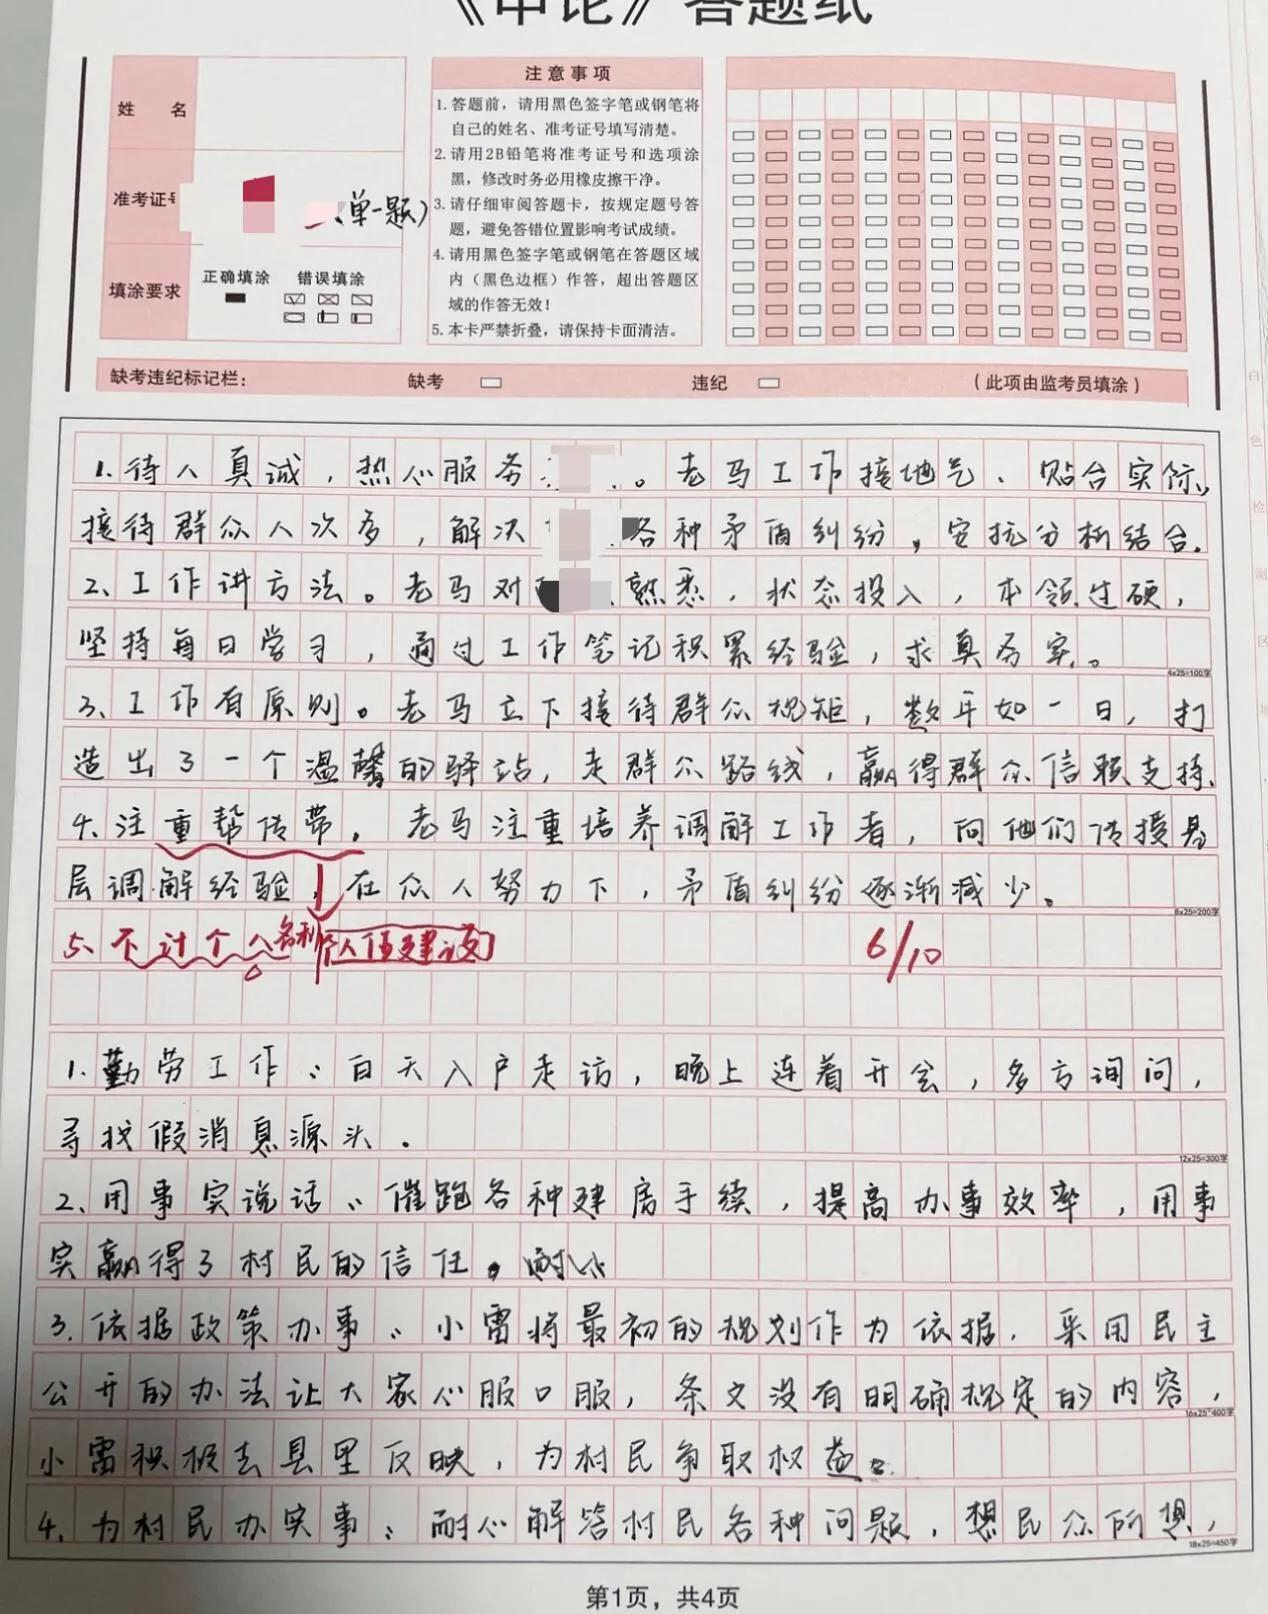 《申论》答题纸
姓 名
准考证号
(单一题)
填涂要求
正确填涂 错误填涂
注意事项
1.答题前，请用黑色签字笔或钢笔将
自己的姓名、准考证号填写清楚。
2.请用2B铅笔将准考证号和选项涂
黑，修改时务必用橡皮擦干净。
3.请仔细审阅答题卡，按规定题号答
题，避免答错位置影响考试成绩。
4.请用黑色签字笔或钢笔在答题区域
内（黑色边框）作答，超出答题区
域的作答无效！
5.本卡严禁折叠，请保持卡面清洁。
缺考违纪标记栏： 缺考 违纪 （此项由监考员填涂）
1.待人真诚，热心服务。老马工作接地气、贴合实际，
接待群众人次多，解决各种矛盾纠纷，安抚分析结合.
2、工作讲方法。老马对熟悉，状态投入，本领过硬，
坚持每日学习，通过工作笔记积累经验，求真务实。
4x25=100字
3、工作有原则。老马立下接待群众规矩，数年如一日，打
造出了一个温馨的驿站，走群众路线，赢得群众信赖支持.
4、注重帮传带。老马注重培养调解工作者，向他们传授基
层调解经验，在众人努力下，矛盾纠纷逐渐减少。
8x25=200字
5、不计个人名利 6/10
1.勤劳工作：白天入户走访，晚上连着开会，多方询问，
寻找假消息源头.
12x25=300字
2、用事实说话：催跑各种建房手续，提高办事效率，用事
实赢得了村民的信任。
3.依据政策办事：小雷将最初的规划作为依据，采用民主
公开的办法让大家心服口服，条文没有明确规定的内容，
16x25=400字
小雷积极去县里反映，为村民争取权益。
4.为村民办实事：耐心解答村民各种问题，想民众所想，
18x25=450字
第1页，共4页